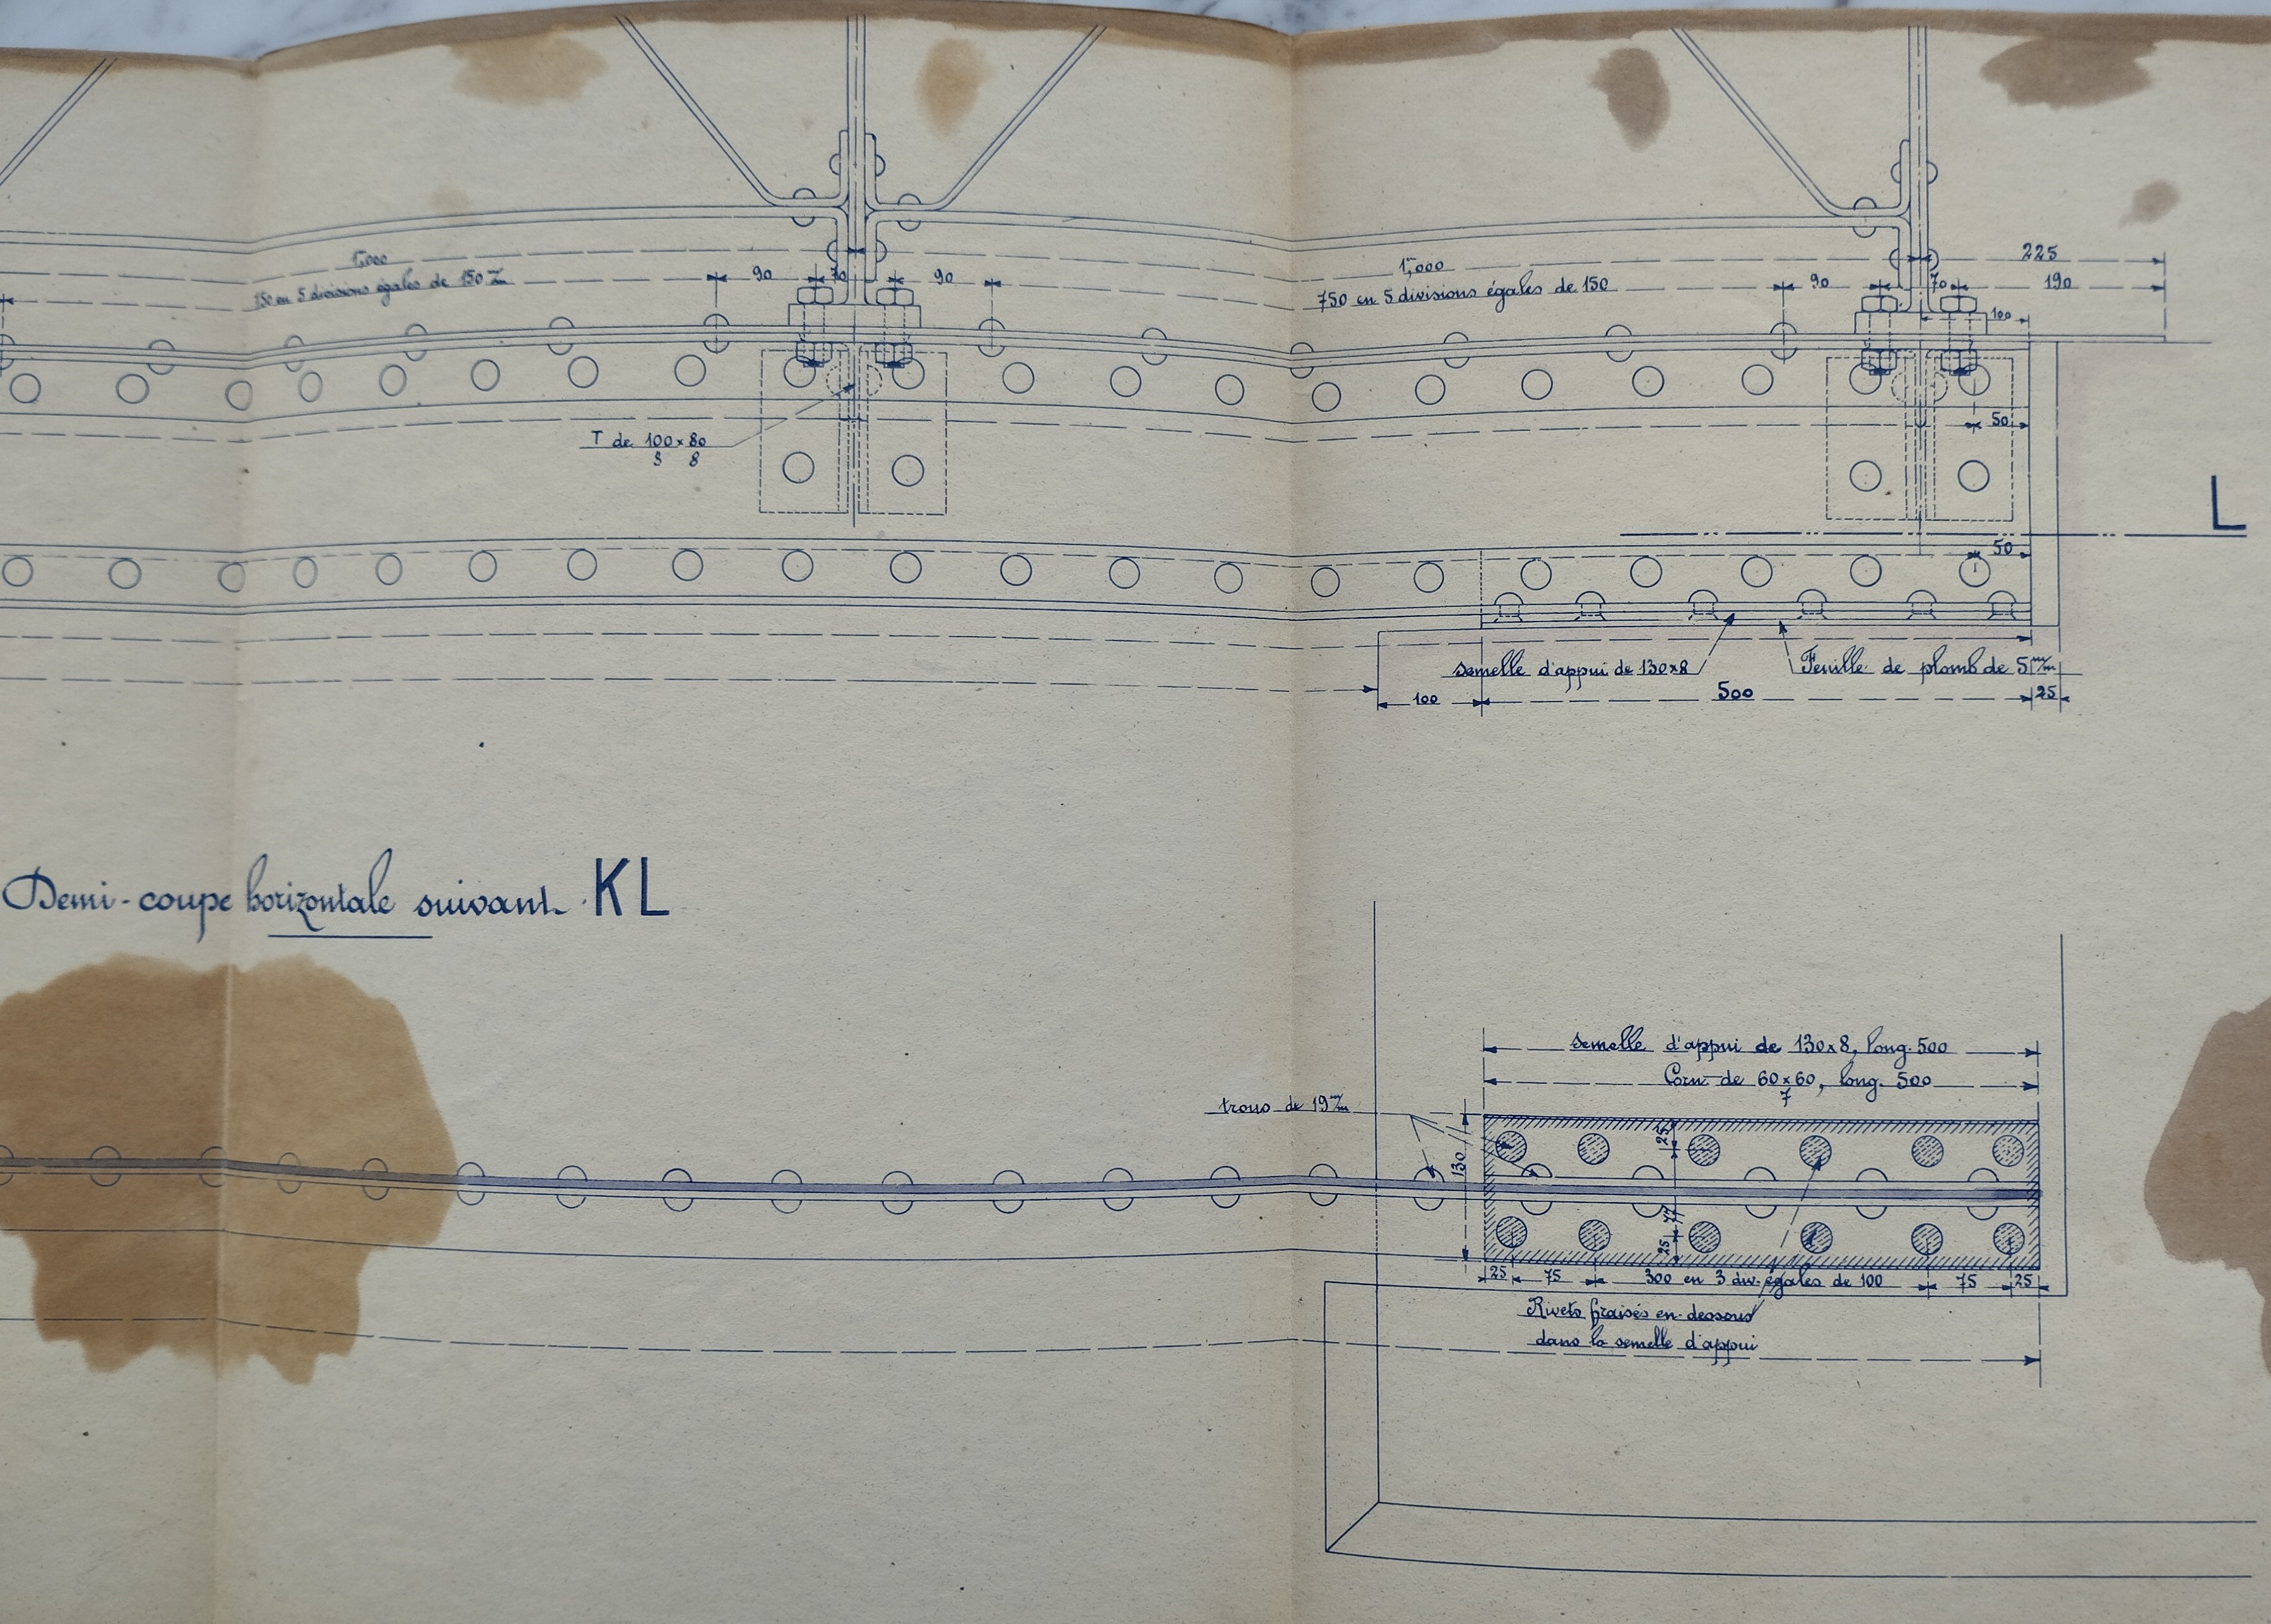 1,000
750 en 5 divisions égales de 150 m/m
90
70
90
1m,000
750 en 5 divisions égales de 150
90
70
225
190
100
T de 100 x 80
8 8
50
L
50
semelle d'appui de 130x8
Feuille de plomb de 5 m/m
100
500
25
Demi-coupe horizontale suivant KL
semelle d'appui de 130x8, long. 500
Corn. de 60x60, long. 500
7
trous de 19 m/m
130
25
25
25
75
300 en 3 div. égales de 100
75
25
Rivets fraisés en dessous
dans la semelle d'appui